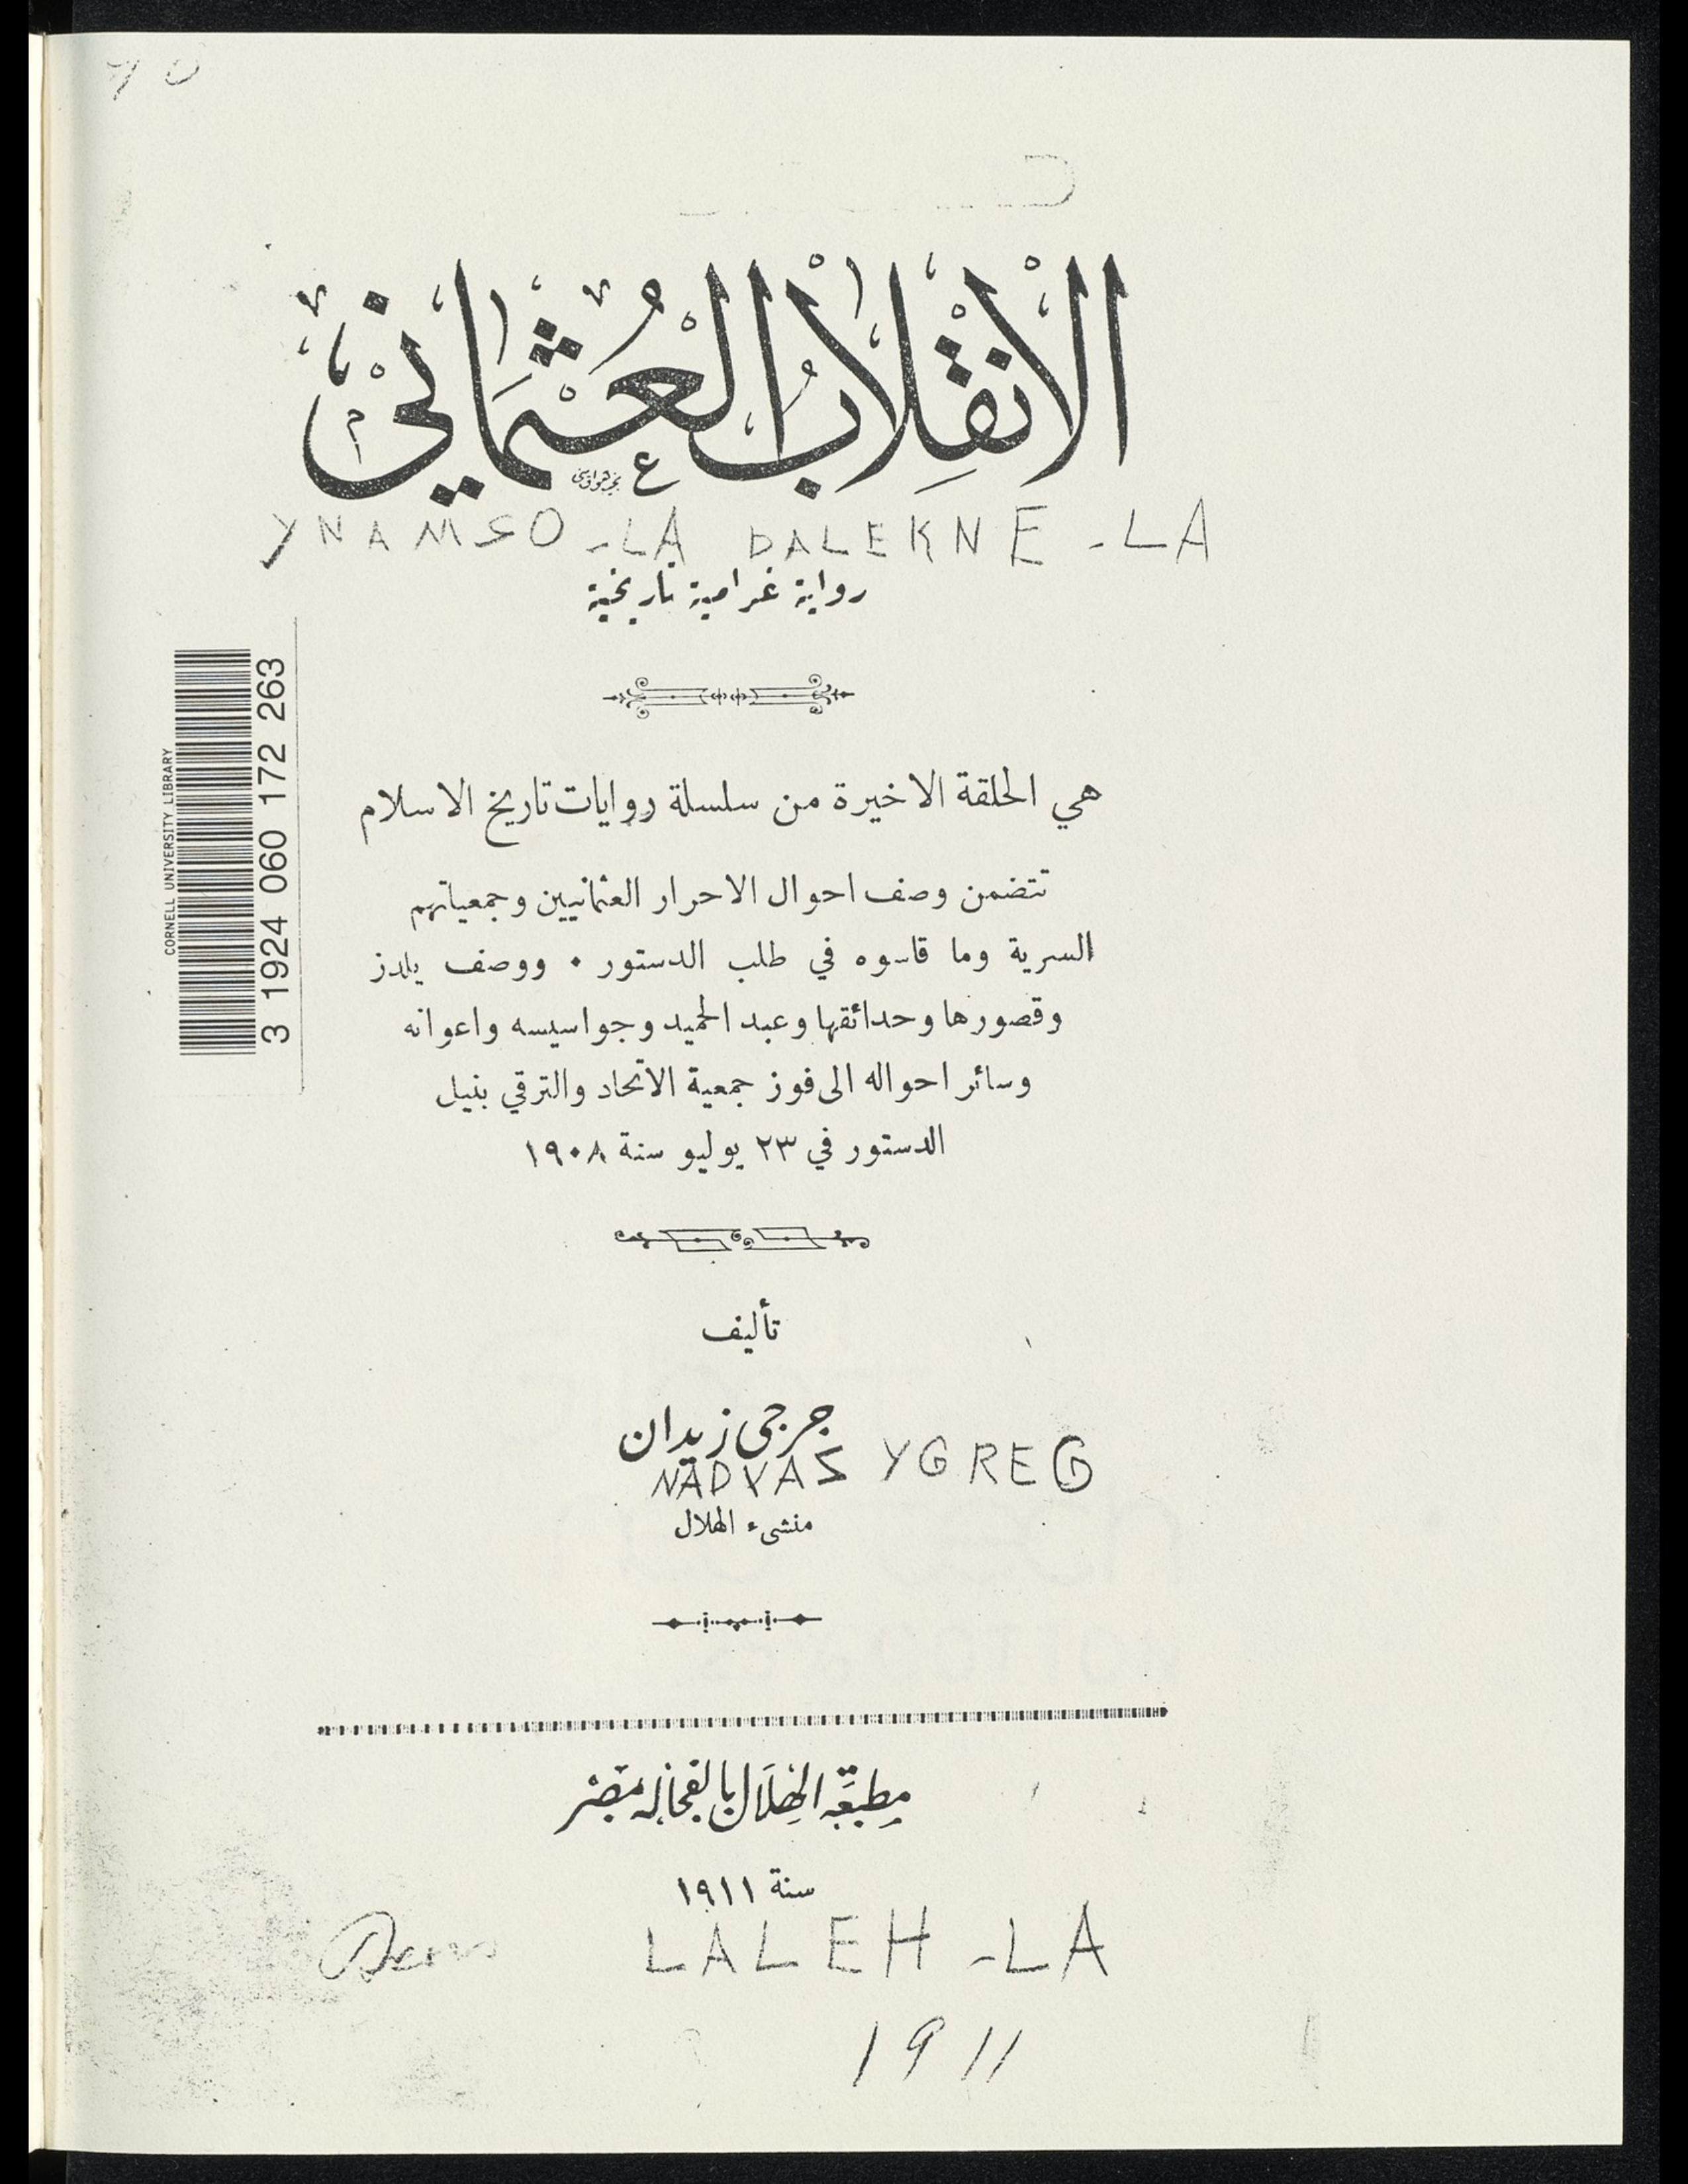 الانْقِلَابُ الْعُثْمَانيّ
YNAMSO-LA DALEKNE-LA
رواية غرامية تاريخية
CORNELL UNIVERSITY LIBRARY
3 1924 060 172 263
هي الحلقة الاخيرة من سلسلة روايات تاريخ الاسلام
تتضمن وصف احوال الاحرار العثمانيين وجمعياتهم
السرية وما قاسوه في طلب الدستور . ووصف يلدز
وقصورها وحدائقها وعبد الحميد وجواسيسه واعوانه
وسائر احواله الى فوز جمعية الاتحاد والترقي بنيل
الدستور في ٢٣ يوليو سنة ١٩٠٨
تأليف
جرجي زيدان
NADYAZ YGREG
منشىء الهلال
مطبعة الهلال بالفجالة بمصر
سنة ١٩١١
LALEH-LA
1911